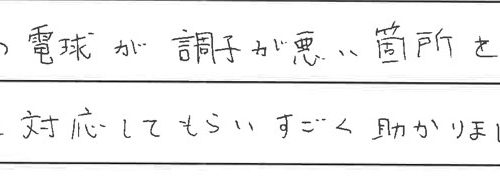 電球が調子が悪い箇所を
対応してもらいすごく助かりまし